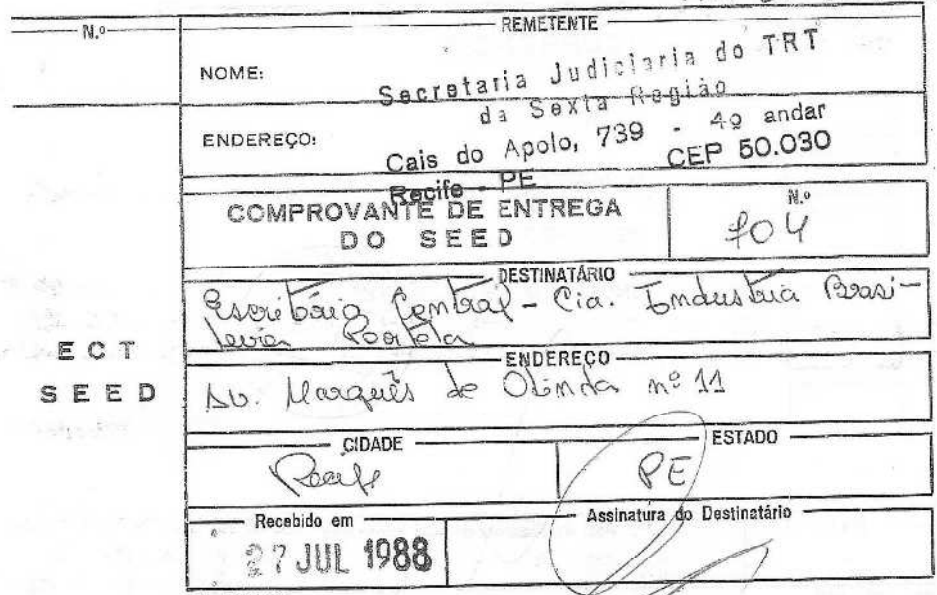 N.º
REMETENTE
NOME:
Secretaria Judiciaria do TRT
da Sexta Região
ENDEREÇO:
Cais do Apolo, 739 - 4º andar
Recife - PE CEP 50.030
COMPROVANTE DE ENTREGA
DO SEED
N.º
704
DESTINATÁRIO
Escritório Central - Cia. Industria Brasi-
leira Portela
ECT
SEED
ENDEREÇO
Av. Marquês de Olinda nº 11
CIDADE
Recife
ESTADO
PE
Recebido em
27 JUL 1988
Assinatura do Destinatário